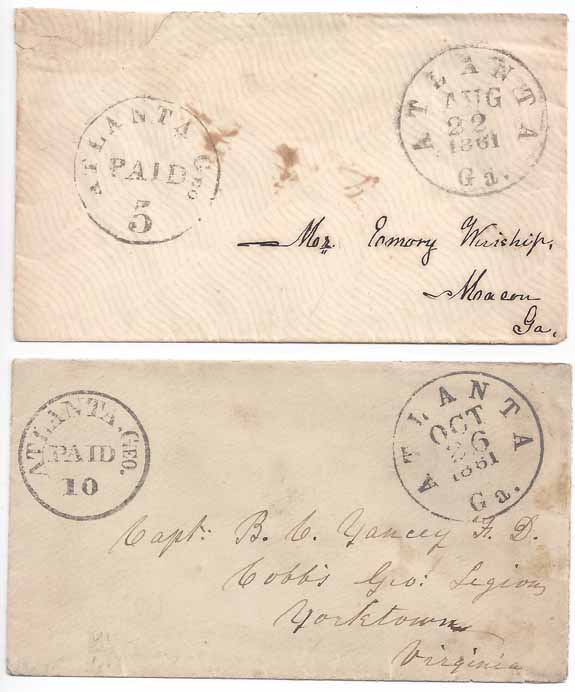 ATLANTA, GEO.
PAID
5
ATLANTA
AUG
22
1861
Ga.
Mr. Emory Winship,
Macon
Ga.
ATLANTA, GEO.
PAID
10
ATLANTA
OCT
26
1861
Ga.
Capt. B. C. Yancey F. D.
Cobb's Geo: Legion,
Yorktown
Virginia